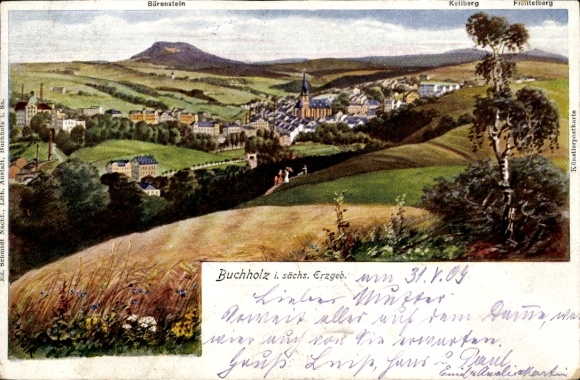 Bärenstein
Keilberg Fichtelberg
Ed. Schmidt Nachf., Lith. Anstalt, Buchholz i. Sa.
Künstlerpostkarte
Buchholz i. sächs. Erzgeb. am 31.V.09
Liebe Mutter
alles auf dem
wir auch von Sie erwarten.
Gruß Luise, Hans u Paul
Martin